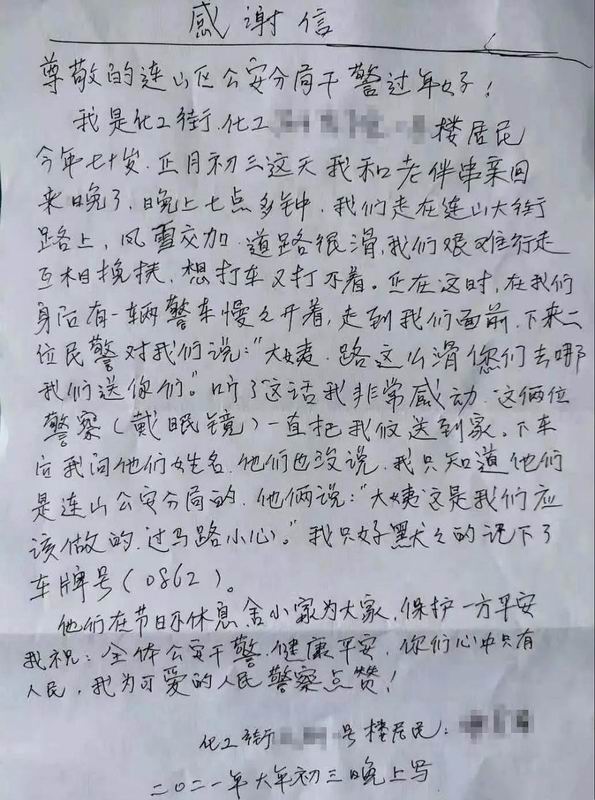 感谢信
尊敬的连山区公安分局干警过年好！
我是化工街.化工 楼居民
今年七十岁.正月初三这天我和老伴串亲回
来晚了.晚上七点多钟.我们走在连山大街
路上，风雪交加.道路很滑，我们艰难行走
互相挽扶，想打车又打不着。正在这时，在我们
身后有一辆警车慢々开着，走到我们面前.下来二
位民警对我们说：“大姨.路这么滑您们去哪
我们送你们。”听了这话我非常感动.这俩位
警察（戴眼镜）一直把我们送到家。下车
后我问他们姓名.他们也没说.我只知道他们
是连山公安分局的.他俩说：“大姨这是我们应
该做的.过马路小心。”我只好默々的记下了
车牌号（0862）。
他们在节日不休息舍小家为大家，保护一方平安
我祝：全体公安干警.健康平安，你们心中只有
人民，我为可爱的人民警察点赞！
化工街 号楼居民：
二〇二一年大年初三晚上写